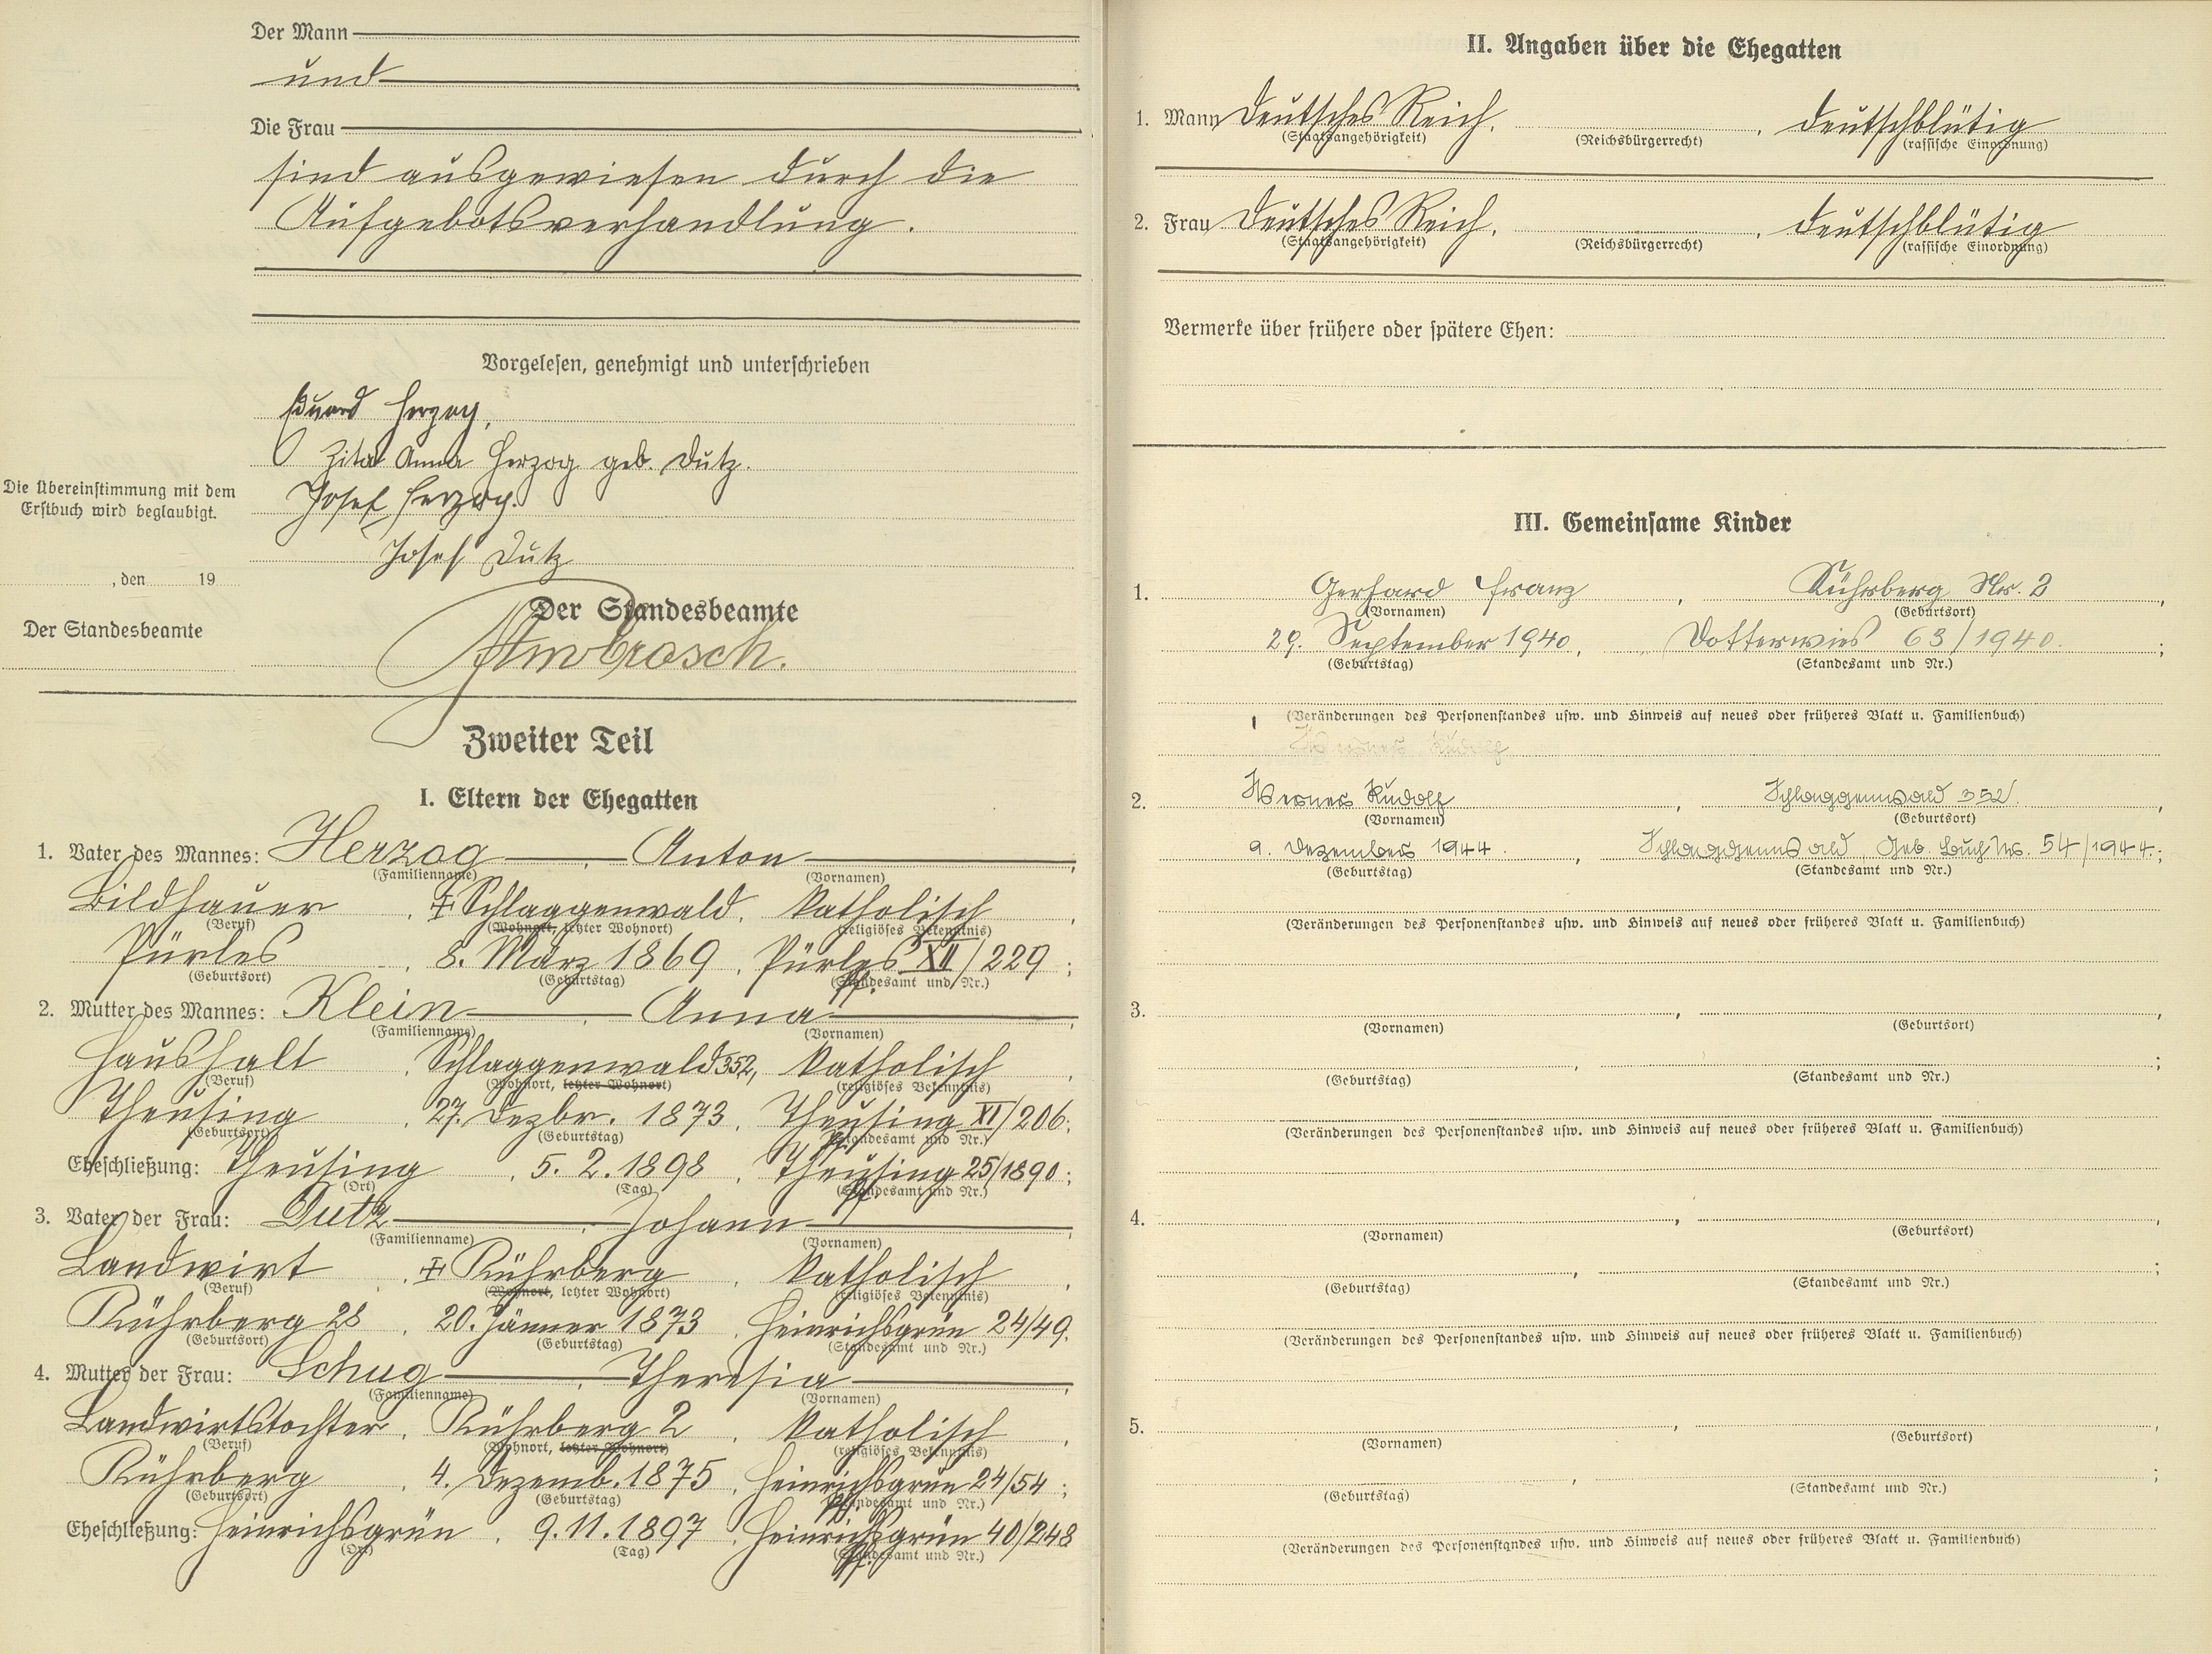 Der Mann
und
Die Frau
sind ausgewiesen durch die
Aufgebotsverhandlung.
Vorgelesen, genehmigt und unterschrieben
Eduard Herzog,
Zita Anna Herzog geb. Dutz.
Die Übereinstimmung mit dem
Erstbuch wird beglaubigt.
Josef Herzog.
Josef Dutz
, den 19
Der Standesbeamte
Der Standesbeamte
Ambrosch.
Zweiter Teil
I. Eltern der Ehegatten
1. Vater des Mannes: Herzog, Anton,
(Familienname) (Vornamen)
Bildhauer, Schlaggenwald, katholisch,
(Beruf) (Wohnort, letzter Wohnort) (religiöses Bekenntnis)
Pürles, 8. März 1869, Pürles XII/229;
(Geburtsort) (Geburtstag) (Standesamt und Nr.)
2. Mutter des Mannes: Klein, Anna,
(Familienname) (Vornamen)
Haushalt, Schlaggenwald 352, katholisch,
(Beruf) (Wohnort, letzter Wohnort) (religiöses Bekenntnis)
Theusing, 27. Dezbr. 1873, Theusing XI/206;
(Geburtsort) (Geburtstag) (Standesamt und Nr.)
Eheschließung: Theusing, 5. 2. 1898, Theusing 25/1890;
(Ort) (Tag) (Standesamt und Nr.)
3. Vater der Frau: Dutz, Johann,
(Familienname) (Vornamen)
Landwirt, Kührberg, katholisch,
(Beruf) (Wohnort, letzter Wohnort) (religiöses Bekenntnis)
Kührberg 28, 20. Jänner 1873, Heinrichsgrün 24/49.
(Geburtsort) (Geburtstag) (Standesamt und Nr.)
4. Mutter der Frau: Schug, Theresia,
(Familienname) (Vornamen)
Landwirtstochter, Kührberg 2, katholisch,
(Beruf) (Wohnort, letzter Wohnort) (religiöses Bekenntnis)
Kührberg, 4. Dezemb. 1875, Heinrichsgrün 24/54;
(Geburtsort) (Geburtstag) (Standesamt und Nr.)
Eheschließung: Heinrichsgrün, 9. 11. 1897, Heinrichsgrün 40/248
(Ort) (Tag) (Standesamt und Nr.)
II. Angaben über die Ehegatten
1. Mann Deutsches Reich, , deutschblütig
(Staatsangehörigkeit) (Reichsbürgerrecht) (rassische Einordnung)
2. Frau Deutsches Reich, , deutschblütig
(Staatsangehörigkeit) (Reichsbürgerrecht) (rassische Einordnung)
Vermerke über frühere oder spätere Ehen:
III. Gemeinsame Kinder
1. Gerhard Franz, Kührberg Nr. 2,
(Vornamen) (Geburtsort)
29. September 1940, Dotterwies 63/1940.;
(Geburtstag) (Standesamt und Nr.)
(Veränderungen des Personenstandes usw. und Hinweis auf neues oder früheres Blatt u. Familienbuch)
Werner Rudolf
2. Werner Rudolf, Schlaggenwald 352.,
(Vornamen) (Geburtsort)
9. Dezember 1944., Schlaggenwald, Geb. Buch Nr. 54/1944.;
(Geburtstag) (Standesamt und Nr.)
(Veränderungen des Personenstandes usw. und Hinweis auf neues oder früheres Blatt u. Familienbuch)
3. , ,
(Vornamen) (Geburtsort)
, ;
(Geburtstag) (Standesamt und Nr.)
(Veränderungen des Personenstandes usw. und Hinweis auf neues oder früheres Blatt u. Familienbuch)
4. , ,
(Vornamen) (Geburtsort)
, ;
(Geburtstag) (Standesamt und Nr.)
(Veränderungen des Personenstandes usw. und Hinweis auf neues oder früheres Blatt u. Familienbuch)
5. , ,
(Vornamen) (Geburtsort)
, ;
(Geburtstag) (Standesamt und Nr.)
(Veränderungen des Personenstandes usw. und Hinweis auf neues oder früheres Blatt u. Familienbuch)